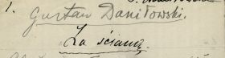 1.
Gustaw Daniłowski.
Za ścianą.